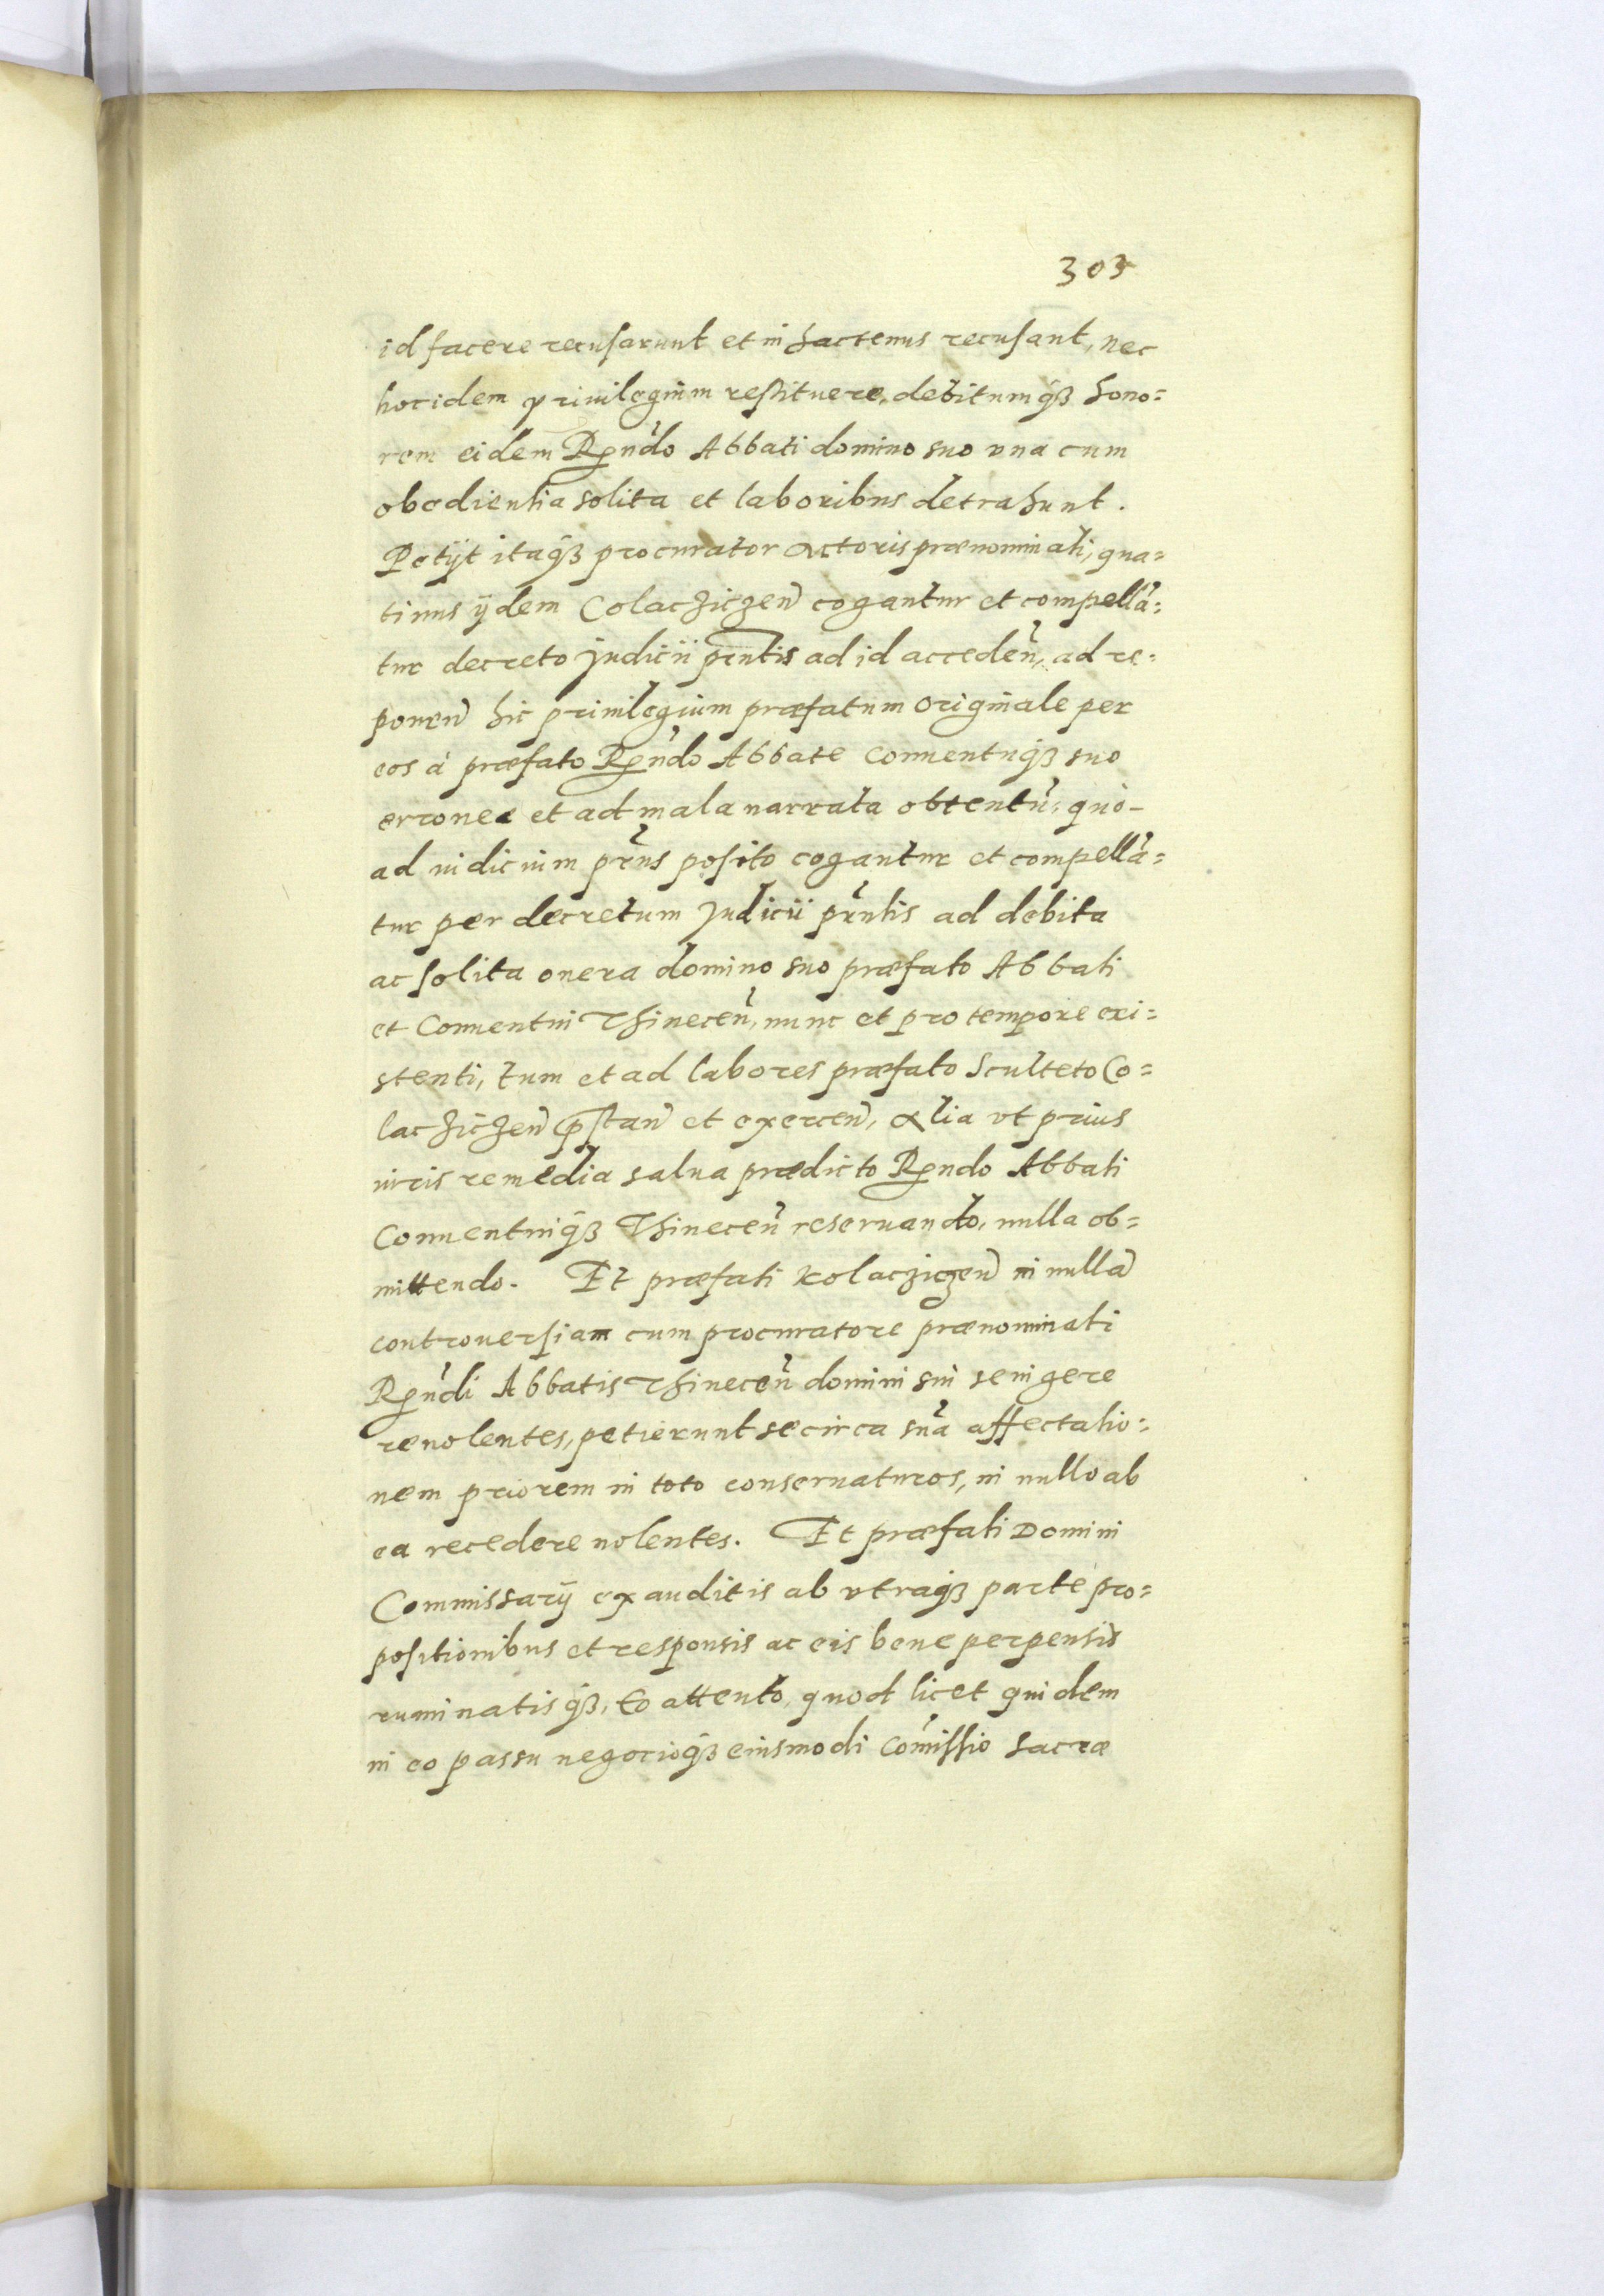 303
id facere recusarunt et in hactenus recusant, nec
hoc idem priuilegium restituere, debitumq́ꝫ hono=
rem eidem Rṇdo Abbati domino suo vna cum
obedientia solita et laboribus detrahunt.
Petijt itaq́ꝫ procurator actoris prænominati, qua=
tinus ÿdem Colacziczen̄ cogantur et compellā=
tur decreto judicii pn̄tis ad id acceden̄, ad re=
ponen̄ hic priuilegium præfatum originale per
eos à præfato Rṇdo Abbate Conuentuq́ꝫ suo
erronee et ad mala narrata obtentū, quo-
ad iudicium pr̄us posito cogantur et compellā=
tur per decretum judicii pn̄tis ad debita
ac solita onera domino suo præfato Abbati
et Conuentui Thinecen̄, nunc et pro tempore exi=
stenti, tum et ad labores præfato Sculteto Co=
lacziczen̄ p̄stan̄ et exercen̄, alia vt prius
iuris remedia salua prædicto Rndo Abbati
Conuentuiq́ꝫ Thinecen̄ reseruando, nulla ob=
mittendo. Et præfati Kolacziczen̄ in nullā
controuersiam cum procuratore prænominati
Rn̄di Abbatis Thinecen̄ domini sui se ingere
re nolentes, petierunt se circa suā affectatio=
nem priorem in toto conseruaturos, in nullo ab
ea recedere nolentes. Et præfati Domini
Commissarÿ exauditis ab vtraq́ꝫ parte pro=
positionibus et responsis ac eis bene perpensis
ruminatisq́ꝫ, Eo attento, quod licet quidem
in eo passu negocioq́ꝫ eiusmodi Com̄issio sacræ